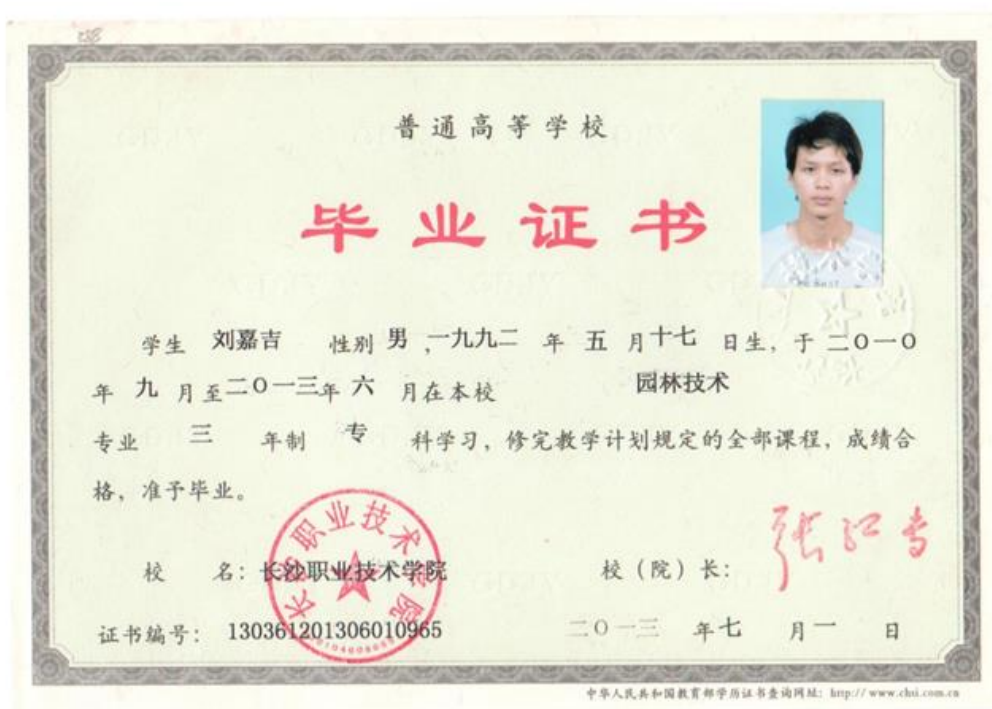 普通高等学校
毕业证书
学生 刘嘉吉 性别 男 ,一九九二 年 五 月 十七 日生, 于 二〇一〇
年 九 月至 二〇一三 年 六 月在本校 园林技术
专业 三 年制 专 科学习, 修完教学计划规定的全部课程, 成绩合
格, 准予毕业。
校 名: 长沙职业技术学院
校(院)长:
长沙职业技术学院
证书编号: 130361201306010965
二〇一三 年 七 月 一 日
中华人民共和国教育部学历证书查询网址: http://www.chsi.com.cn